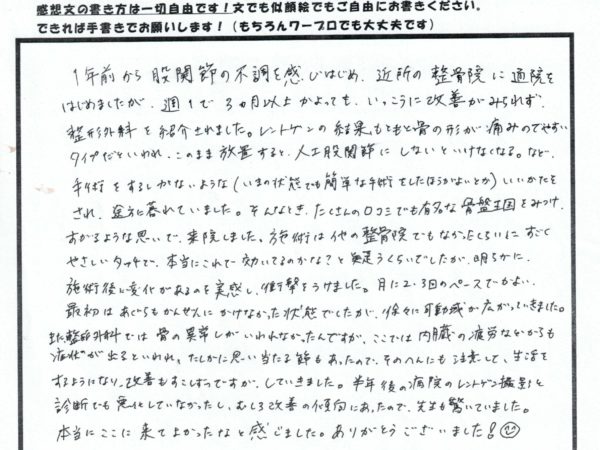 感想文の書き方は一切自由です！文でも似顔絵でもご自由にお書きください。
できれば手書きでお願いします！（もちろんワープロでも大丈夫です）
1年前から股関節の不調を感じはじめ、近所の整骨院に通院を
はじめましたが、週1で3ヵ月以上かよっても、いっこうに改善がみられず、
整形外科を紹介されました。レントゲンの結果、もともと骨の形が痛みのでやすい
タイプだといわれ、このまま放置すると、人工股関節にしないといけなくなる。など、
手術をするしかないような（いまの状態でも簡単な手術をしたほうがよいとか）いいかたを
され、途方に暮れていました。そんなとき、たくさんの口コミでも有名な骨盤王国をみつけ、
すがるような思いで、来院しました。施術は他の整骨院でもなかったくらいに すごく
やさしいタッチで、本当にこれで効いてるのかな？と疑うくらいでしたが、明らかに
施術後に変化があるのを実感し、衝撃をうけました。月に2・3回のペースでかよい、
最初はあぐらもかんぜんにかけなかった状態でしたが、徐々に可動域が広がっていきました。
また整形外科では骨の異常しかいわれなかったんですが、ここでは内臓の疲労などからも
症状が出るといわれ、たしかに思い当たる節もあったので、そのへんにも注意して、生活を
するようになり、改善もすこしずつですが、していきました。半年後の病院のレントゲン撮影と
診断でも悪化していなかったし、むしろ改善の傾向にあったので、先生も驚いていました。
本当にここに来てよかったなと感じました。ありがとうございました！